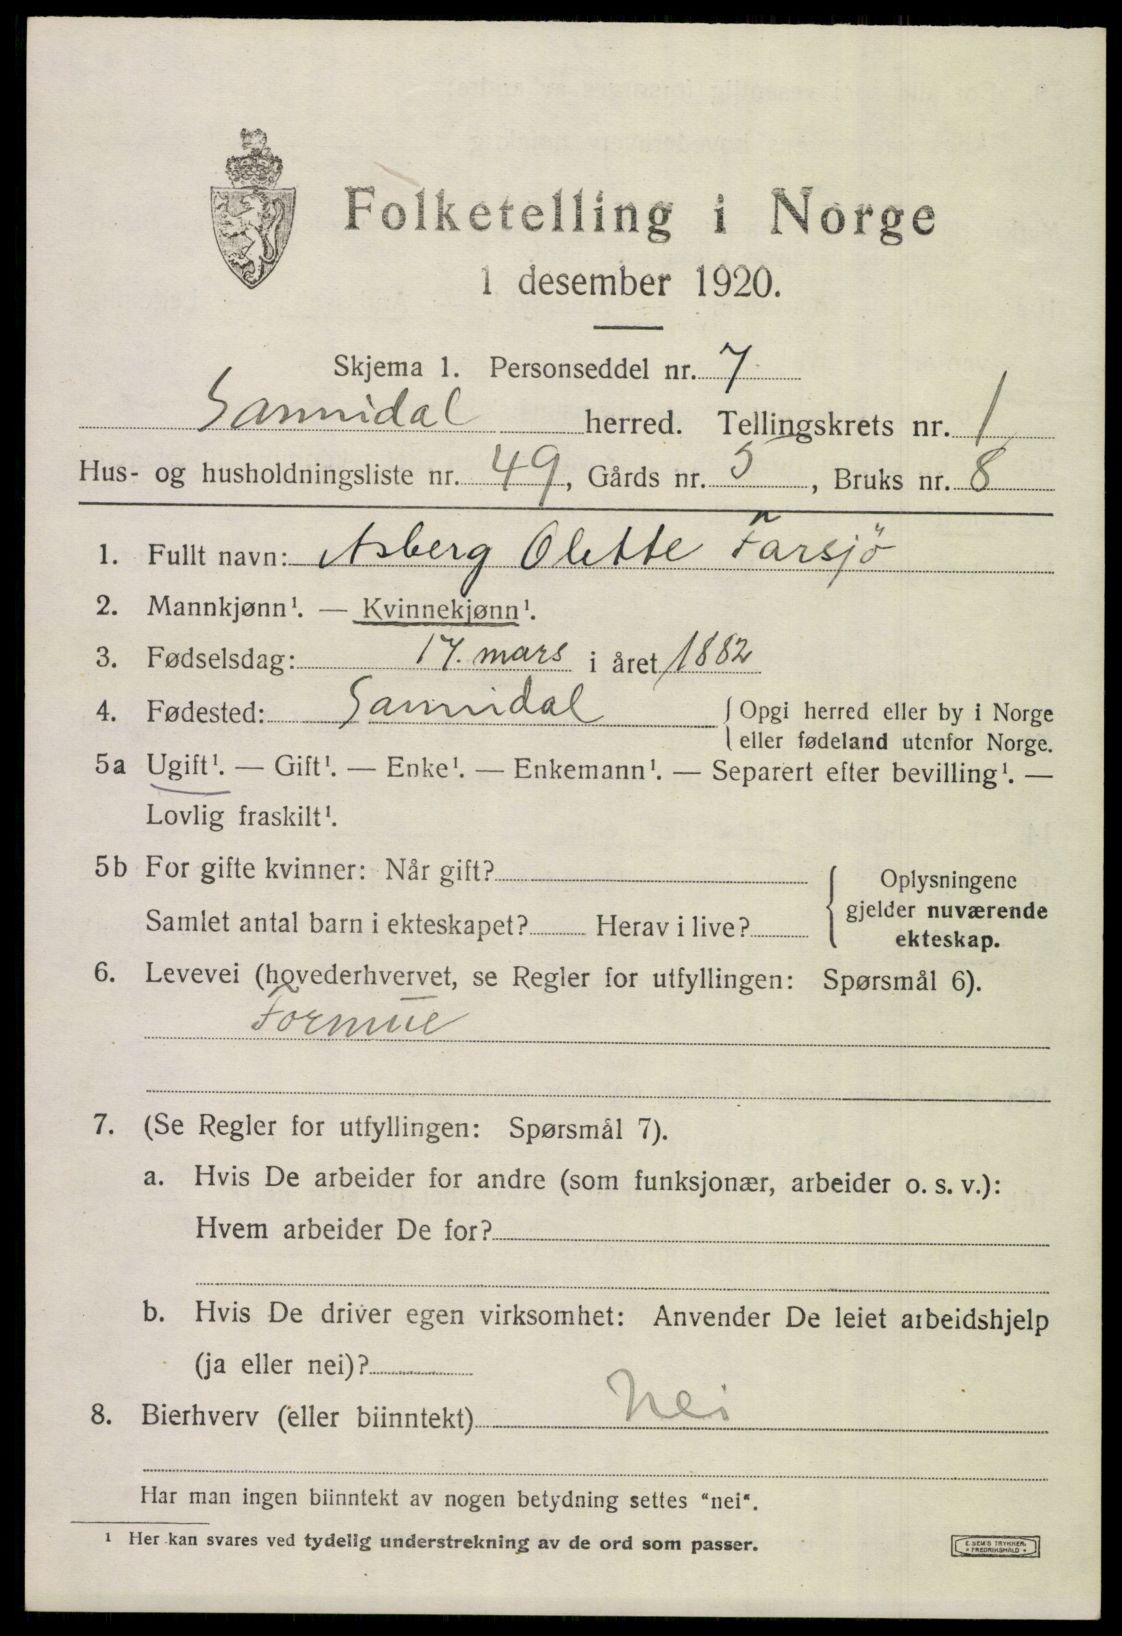 Folketelling i Norge
1 desember 1920.
Skjema 1. Personseddel nr. 7
Sannidal herred. Tellingskrets nr. 1
Hus- og husholdningsliste nr. 49, Gårds nr. 5, Bruks nr. 8
1. Fullt navn: Asberg Olette Farsjö
2. Mannkjønn¹. — Kvinnekjønn¹.
3. Fødselsdag: 17. mars i året 1882
4. Fødested: Sannidal { Opgi herred eller by i Norge
eller fødeland utenfor Norge.
5a Ugift¹. — Gift¹. — Enke¹. — Enkemann¹. — Separert efter bevilling¹. —
Lovlig fraskilt¹.
5b For gifte kvinner: Når gift?
Samlet antal barn i ekteskapet? Herav i live?
{ Oplysningene
gjelder nuværende
ekteskap.
6. Levevei (hovederhvervet, se Regler for utfyllingen: Spørsmål 6).
Formue
7. (Se Regler for utfyllingen: Spørsmål 7).
a. Hvis De arbeider for andre (som funksjonær, arbeider o. s. v.):
Hvem arbeider De for?
b. Hvis De driver egen virksomhet: Anvender De leiet arbeidshjelp
(ja eller nei)?
8. Bierhverv (eller biinntekt) Nei
Har man ingen biinntekt av nogen betydning settes "nei".
¹ Her kan svares ved tydelig understrekning av de ord som passer.
E. SEM'S TRYKKERI
FREDRIKSHALD